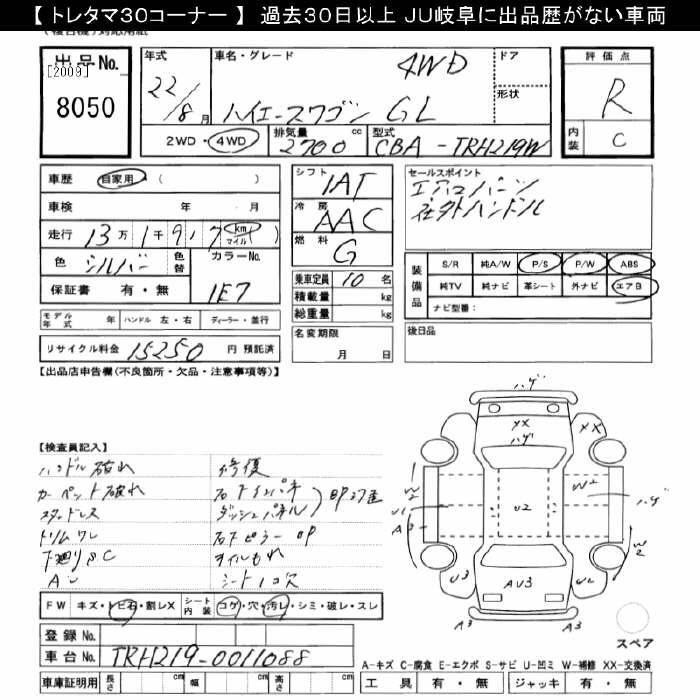 【トレタマ30コーナー】 過去30日以上 JU岐阜に出品歴がない車両
出品No.
[2009]
8050
年式 22/8月
車名・グレード 4WD
ハイエースワゴン GL
ドア
形状
2WD・4WD
排気量 2700 cc
型式 CBA-TRH219W
評価点
R
内装 C
車歴 自家用・( )
車検 年 月
走行 13万1千917 (km マイル)
色 シルバー 色替 カラーNo.
保証書 有・無 1E7
シフト IAT
冷房 AAC
燃料 G
乗車定員 10 名
積載量 kg
総重量 kg
名変期限
月 日
セールスポイント
エアロパーツ
社外ハンドル
装備品
S/R 純A/W P/S P/W ABS
純TV 純ナビ 革シート 外ナビ エアB
ナビ型番:
後日品
モデル年式 年 ハンドル 左・右 ディーラー・並行
リサイクル料金 15250 円 預託済
【出品店申告欄(不良箇所・欠品・注意事項等)】
【検査員記入】
ハンドル破れ 修復
カーペット破れ 右インパネ
スタッドレス ダッシュパネル
トリムワレ 右Fピラー
下廻りSC オイルもれ
シートコゲ穴
ハゲ
XX
ハゲ
XX
W2
W2
ハゲ
U2
U1
A3
W2
U3
AU3
U2
A3
A3
スペア
FW キズ・トビ石・割レX シート内装 コゲ・穴・汚レ・シミ・破レ・スレ
登録No.
車台No. TRH219-0011088
車庫証明用 長さ cm 幅 cm 高さ cm
A-キズ C-腐食 E-エクボ S-サビ U-凹ミ W-補修 XX-交換済
工具 有・無 ジャッキ 有・無